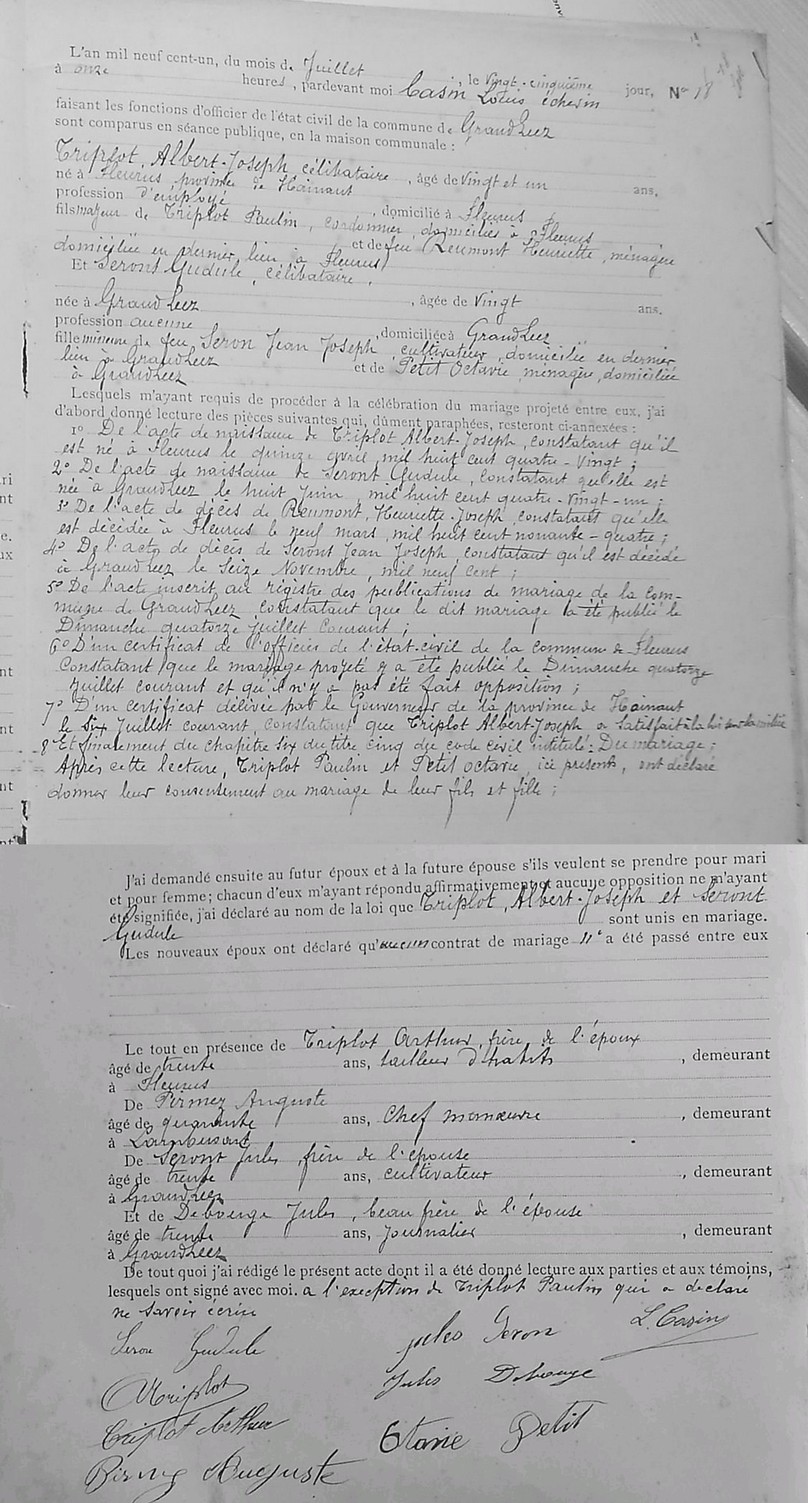 L'an mil neuf cent-un, du mois de Juillet, le vingt-cinquième jour, N° 18
à onze heures, pardevant moi Casin Louis échevin
faisant les fonctions d'officier de l'état civil de la commune de GrandLeez
sont comparus en séance publique, en la maison communale :
Triplot, Albert-Joseph, célibataire, âgé de vingt et un ans,
né à Fleurus, province de Hainaut
profession d'employé, domicilié à Fleurus
fils majeur de Triplot Paulin, cordonnier, domicilié à Fleurus
et de feu Reumont Henriette, ménagère
domiciliée en dernier lieu à Fleurus
Et Seront Gudule, célibataire,
née à GrandLeez, âgée de vingt ans.
profession aucune, domiciliée à GrandLeez
fille mineure de feu, Seron Jean Joseph, cultivateur, domicilié en dernier
lieu à GrandLeez et de Petit Octavie, ménagère, domiciliée
à GrandLeez
Lesquels m'ayant requis de procéder à la célébration du mariage projeté entre eux, j'ai
d'abord donné lecture des pièces suivantes qui, dûment paraphées, resteront ci-annexées :
1° De l'acte de naissance de Triplot Albert-Joseph, constatant qu'il
est né à Fleurus le quinze avril, mil huit cent quatre-vingt ;
2° De l'acte de naissance de Seront Gudule, constatant qu'elle est
née à GrandLeez le huit Juin, mil huit cent quatre-vingt-un ;
3° De l'acte de décès de Reumont, Henriette-Joseph, constatant qu'elle
est décédée à Fleurus le neuf mars, mil huit cent nonante-quatre ;
4° De l'acte de décès de Seront Jean Joseph, constatant qu'il est décédé
à GrandLeez le seize Novembre, mil neuf cent ;
5° De l'acte inscrit au régistre des publications de mariage de la com-
mune de GrandLeez constatant que le dit mariage a été publié le
Dimanche quatorze Juillet courant ;
6° D'un certificat de l'officier de l'état-civil de la commune de Fleurus
Constatant que le mariage projeté y a été publié le Dimanche quatorze
Juillet courant et qu'il n'y a pas été fait opposition ;
7° D'un certificat délivré par le Gouverneur de la province de Hainaut
le six Juillet courant, constatant que Triplot Albert-Joseph a satisfait à la loi sur la milice
8° Et finalement du chapitre six du titre cinq du code civil intitulé : Du mariage ;
Après cette lecture, Triplot Paulin et Petit octavie, ici présents, ont déclaré
donner leur consentement au mariage de leur fils et fille ;
J'ai demandé ensuite au futur époux et à la future épouse s'ils veulent se prendre pour mari
et pour femme ; chacun d'eux m'ayant répondu affirmativement et aucune opposition ne m'ayant
été signifiée, j'ai déclaré au nom de la loi que Triplot, Albert-Joseph et Seront
Gudule sont unis en mariage.
Les nouveaux époux ont déclaré qu'aucun contrat de mariage n'a été passé entre eux
Le tout en présence de Triplot Arthur, frère de l'époux
âgé de trente ans, tailleur d'habits, demeurant
à Fleurus
De Pirmez Auguste
âgé de quarante ans, Chef manœuvre, demeurant
à Lambusart
De Seront Jules, frère de l'épouse
âgé de trente ans, cultivateur, demeurant
à GrandLeez
Et de Debouge Jules, beau frère de l'épouse
âgé de trente ans, Journalier, demeurant
à GrandLeez
De tout quoi j'ai rédigé le présent acte dont il a été donné lecture aux parties et aux témoins,
lesquels ont signé avec moi. a l'exception de Triplot Paulin qui a déclaré
ne savoir écrire
Seron Gudule Jules Seron L. Casin
ATriplot Jules Debouge
Triplot Arthur Octavie Petit
Pirmez Auguste